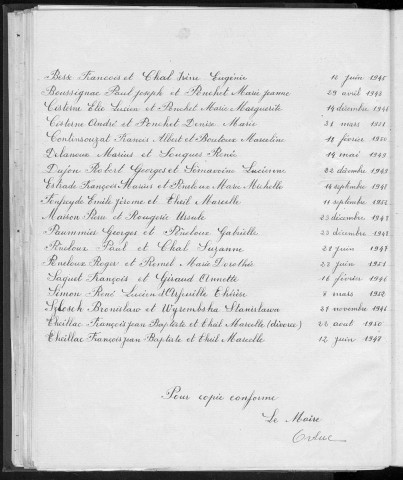 Besse Francois et Chal Irène Eugénie 10 juin 1945
Boussignac Paul joseph et Ponchet Marie jeanne 29 avril 1943
Cisterne Elie Lucien et Ponchet Marie Marguerite 14 décembre 1946
Cisterne André et Ponchet Denise Marie 31 mars 1951
Contensouzat Francis Albert et Bouteux Marcelline 11 février 1950
Delanoue Marius et Longues Renée 19 mai 1949
Dajon Robert Georges et Lucienne 22 décembre 1949
Estrade François Marius et Marie Michelle 14 septembre 1948
Emile Jérome et Theil Marcelle 11 septembre 1952
Maison Pierre et Rougerie Ursule 23 décembre 1943
Georges et Pineloux Gabrielle 23 décembre 1942
Pineloux Paul et Chal Suzanne 21 juin 1947
Roger et Marie Dorothée 23 juin 1951
Saquet François et Giraud Annette 16 février 1946
Simon René Lucien Thérèse 8 mars 1952
Bronislaw et Stanislawa 21 novembre 1946
Theillac François jean Baptiste et Theil Marcelle (divorce) 22 aout 1950
Theillac François jean Baptiste et Theil Marcelle 12 juin 1948
Pour copie conforme
Le Maire